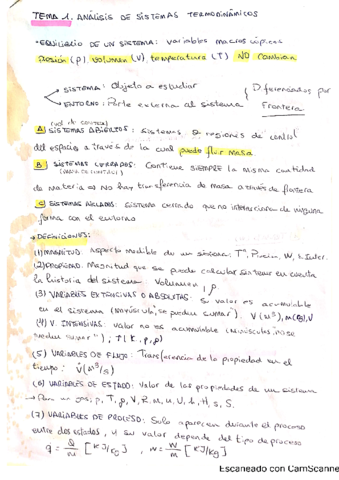 TEMA 1. ANÁLISIS DE SISTEMAS TERMODINÁMICOS
• EQUILIBRIO DE UN SISTEMA: variables macroscópicas
Presión (p), volumen (V), temperatura (T) NO cambian
SISTEMA: Objeto a estudiar
ENTORNO: Parte externa al sistema
Diferenciados por
Frontera
(vol. de control)
A) SISTEMAS ABIERTOS: Sistemas o regiones de control
del espacio a través de la cual puede fluir masa
B) SISTEMAS CERRADOS: Contiene SIEMPRE la misma cantidad
(MASA DE CONTROL)
de materia → No hay transferencia de masa a través de frontera
C) SISTEMAS AISLADOS: Sistema cerrado que no interacciona de ninguna
forma con el entorno
→ DEFINICIONES:
(1) MAGNITUD: Aspecto medible de un sistema: Tª, Presión, W,
(2) PROPIEDAD: Magnitud que se puede calcular sin tener en cuenta
la historia del sistema. Volumen, ρ
(3) VARIABLES EXTENSIVAS O ABSOLUTAS: Su valor es acumulable
en el sistema (mayúscula, se pueden sumar). V (m³), m (kg), U
(4) V. INTENSIVAS: valor no es acumulable (minúsculas, no se
pueden sumar), T (K), p, ρ)
(5) VARIABLES DE FLUJO: Transferencia de la propiedad en el
tiempo: V̇ (m³/s)
(6) VARIABLES DE ESTADO: Valor de las propiedades de un sistema
→ Para un gas; p, T, ρ, V, R, m, u, U, h, H, s, S.
(7) VARIABLES DE PROCESO: Solo aparecen durante el proceso
entre dos estados, y su valor depende del tipo de proceso
q = Q/m [KJ/kg] , w = W/m [KJ/kg]
Escaneado con CamScanne